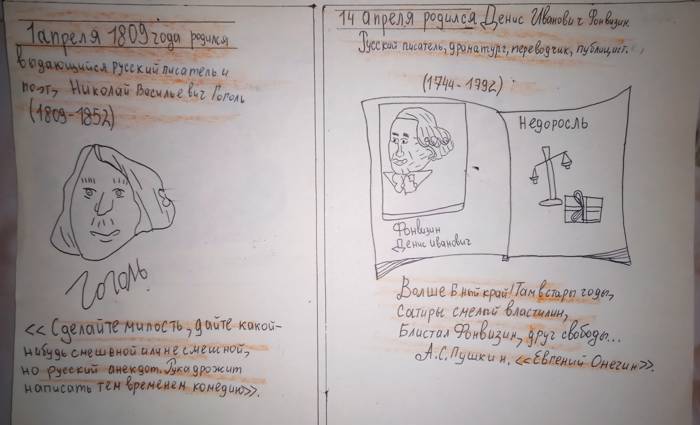 1 апреля 1809 года родился
выдающийся русский писатель и
поэт, Николай Васильевич Гоголь
(1809-1852)
Гоголь
<<Сделайте милость, дайте какой-
нибудь смешной или не смешной,
но русский анекдот. Рука дрожит
написать тем временем комедию>>.
14 апреля родился Денис Иванович Фонвизин.
Русский писатель, драматург, переводчик, публицист.
(1744-1792)
Фонвизин
Денис Иванович
Недоросль
Волшебный край! Там в стары годы,
Сатиры смелый властилин,
Блистал Фонвизин, друг свободы...
А.С. Пушкин, <<Евгений Онегин>>.